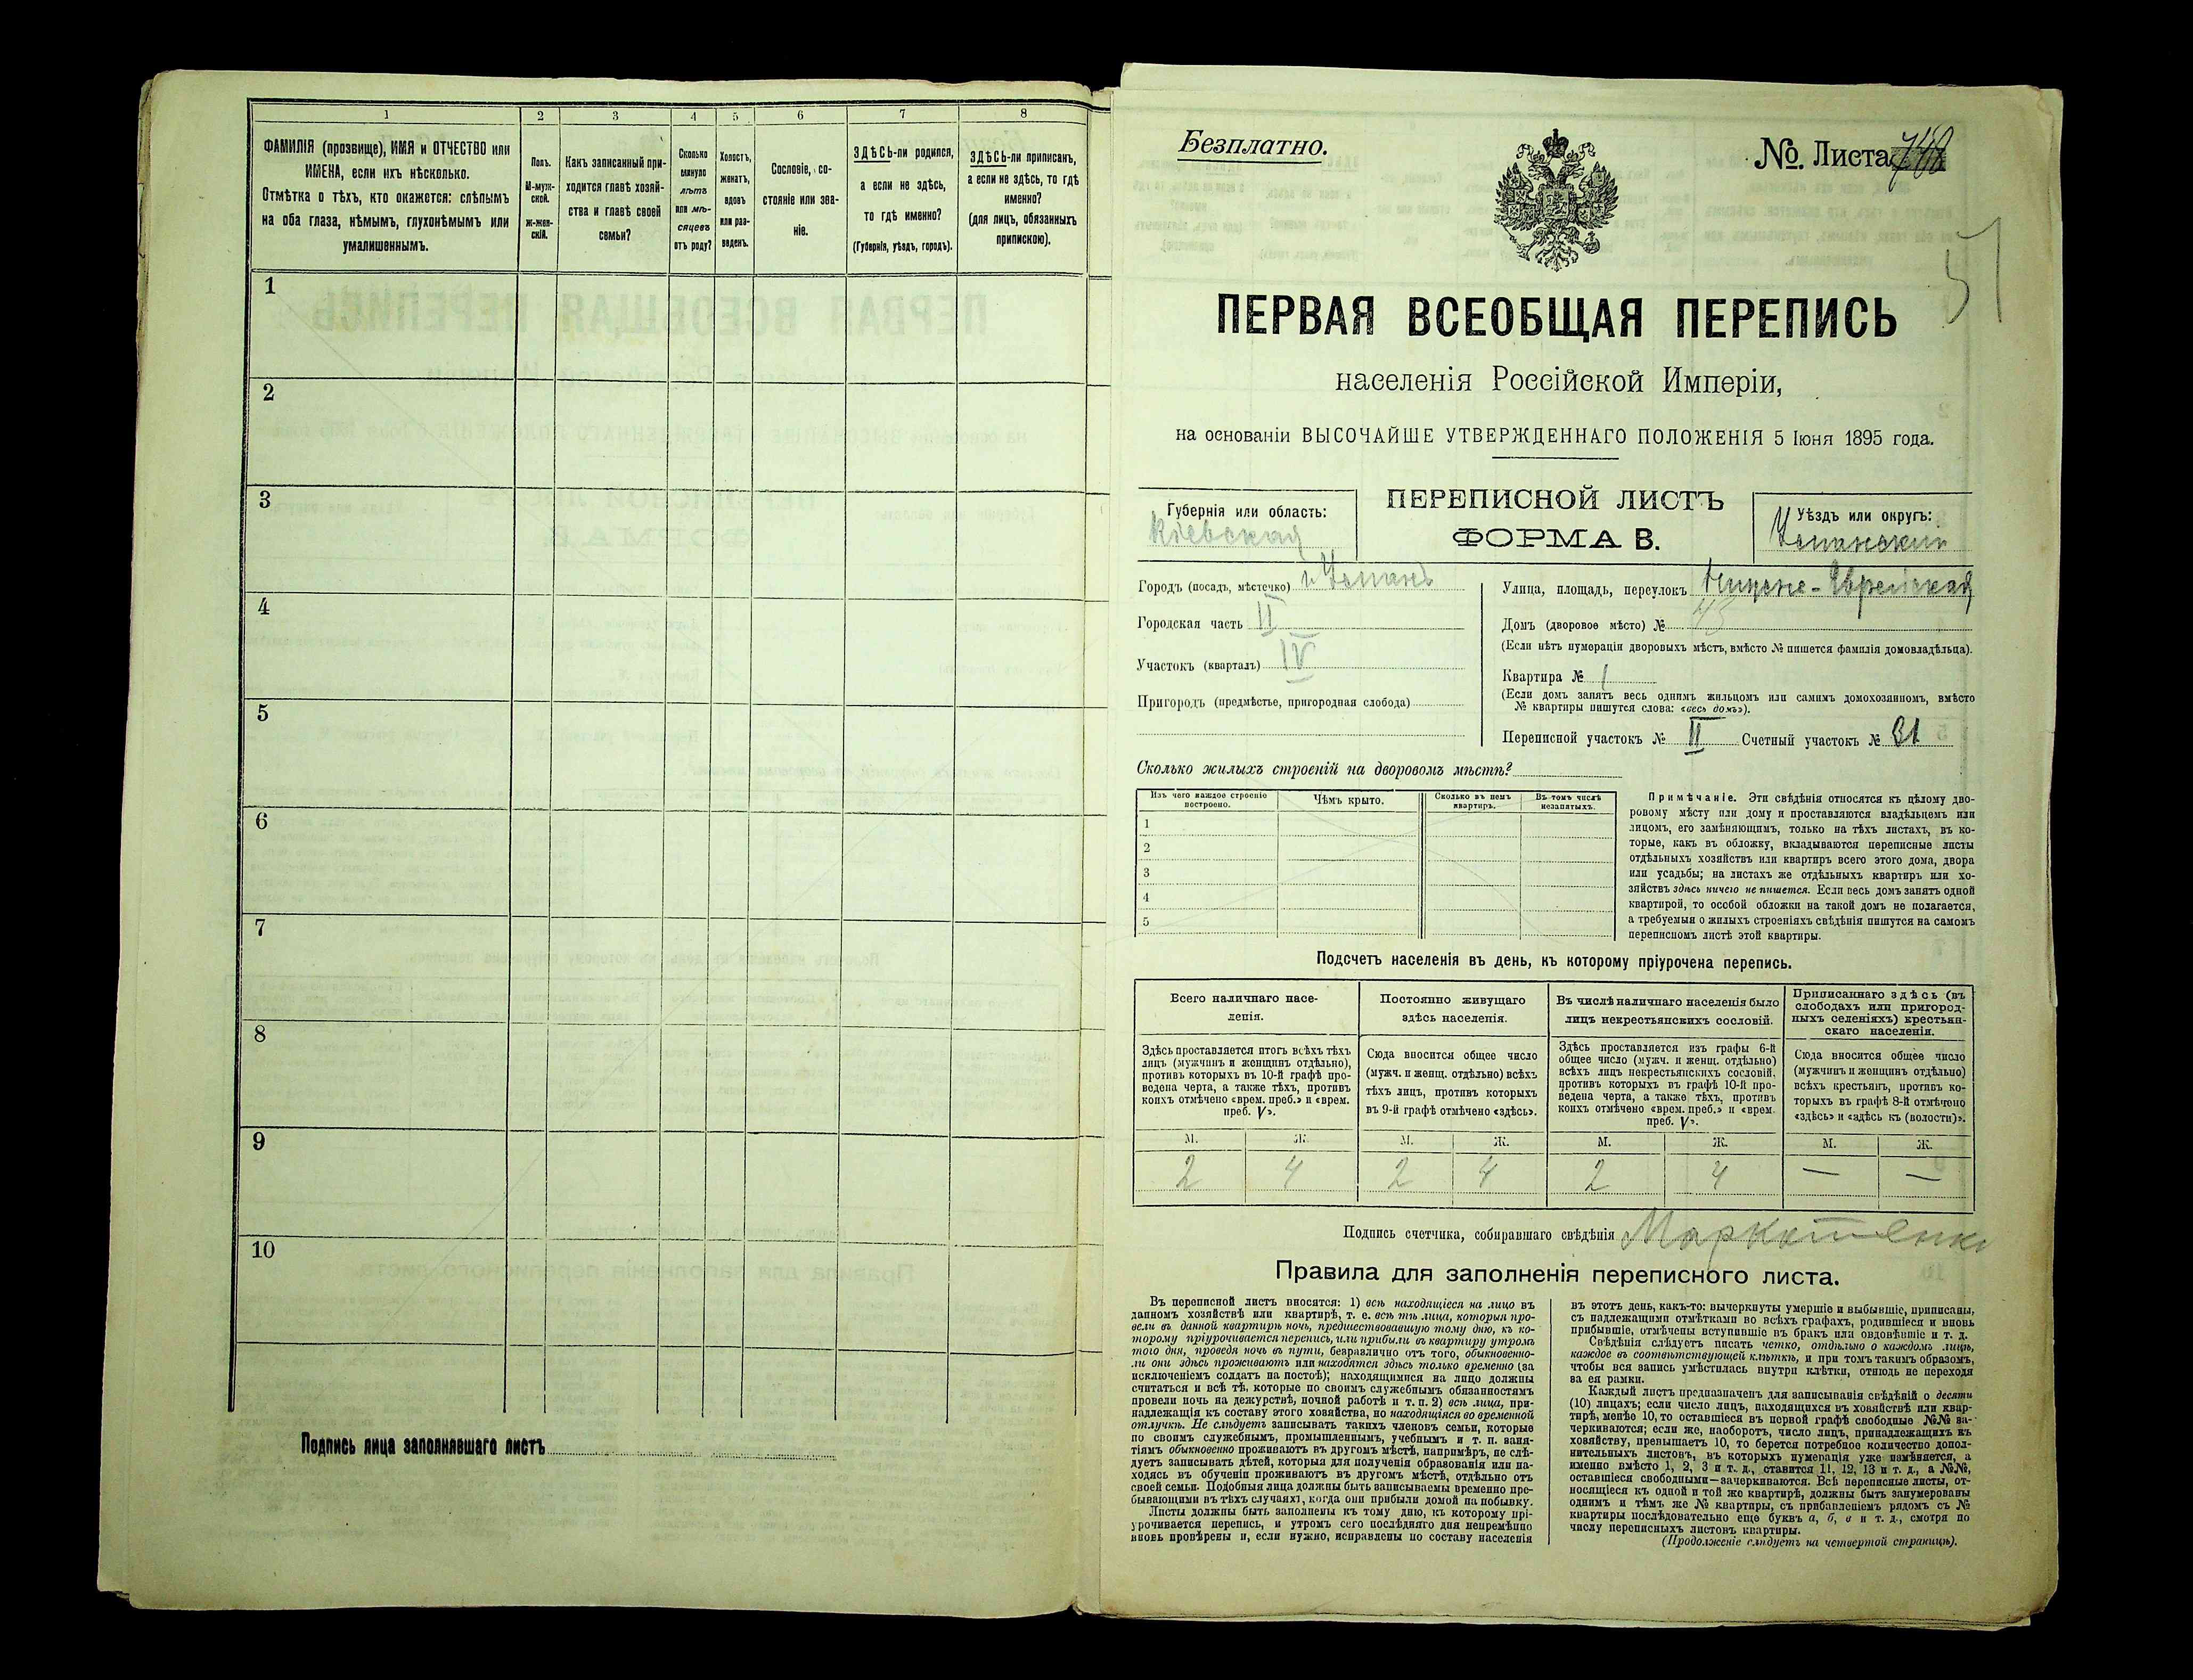 1
2
3
4
5
6
7
8
ФАМИЛІЯ (прозвище), ИМЯ и ОТЧЕСТВО или
ИМЕНА, если ихъ нѣсколько.
Отмѣтка о тѣхъ, кто окажется: слѣпымъ
на оба глаза, нѣмымъ, глухонѣмымъ или
умалишеннымъ.
Полъ.
М-муж-
ской.
Ж-жен-
скій.
Какъ записанный при-
ходится главѣ хозяй-
ства и главѣ своей
семьи?
Сколько
минуло
лѣтъ
или мѣ-
сяцевъ
отъ роду?
Холостъ,
женатъ,
вдовъ
или раз-
веденъ.
Сословіе, со-
стояніе или зва-
ніе.
ЗДѢСЬ-ли родился,
а если не здѣсь,
то гдѣ именно?
(Губернія, уѣздъ, городъ).
ЗДѢСЬ-ли приписанъ,
а если не здѣсь, то гдѣ
именно?
(для лицъ, обязанныхъ
припискою).
1
2
3
4
5
6
7
8
9
10
Подпись лица заполнявшаго листъ
Безплатно.
№ Листа
57
ПЕРВАЯ ВСЕОБЩАЯ ПЕРЕПИСЬ
населенія Россійской Имперіи,
на основаніи ВЫСОЧАЙШЕ УТВЕРЖДЕННАГО ПОЛОЖЕНІЯ 5 Іюня 1895 года.
Губернія или область:
Кіевская
ПЕРЕПИСНОЙ ЛИСТЪ
ФОРМА В.
Уѣздъ или округъ:
Уманскій
Городъ (посадъ, мѣстечко) г. Умань
Городская часть II
Участокъ (кварталъ) IV
Пригородъ (предмѣстье, пригородная слобода)
Улица, площадь, переулокъ Нижне-Еврейская
Домъ (дворовое мѣсто) № 45
(Если нѣтъ нумераціи дворовыхъ мѣстъ, вмѣсто № пишется фамилія домовладѣльца).
Квартира № 1
(Если домъ занятъ весь однимъ жильцомъ или самимъ домохозяиномъ, вмѣсто
№ квартиры пишутся слова: «весь домъ»).
Переписной участокъ № II Счетный участокъ № 31
Сколько жилыхъ строеній на дворовомъ мѣстѣ?
Изъ чего каждое строеніе
построено.
Чѣмъ крыто.
Сколько въ немъ
квартиръ.
Въ томъ числѣ
незанятыхъ.
1
2
3
4
5
Примѣчаніе. Эти свѣдѣнія относятся къ цѣлому дво-
ровому мѣсту или дому и проставляются владѣльцемъ или
лицомъ, его замѣняющимъ, только на тѣхъ листахъ, въ ко-
торые, какъ въ обложку, вкладываются переписные листы
отдѣльныхъ хозяйствъ или квартиръ всего этого дома, двора
или усадьбы; на листахъ же отдѣльныхъ квартиръ или хо-
зяйствъ здѣсь ничего не пишется. Если весь домъ занятъ одной
квартирой, то особой обложки на такой домъ не полагается,
а требуемыя о жилыхъ строеніяхъ свѣдѣнія пишутся на самомъ
переписномъ листѣ этой квартиры.
Подсчетъ населенія въ день, къ которому пріурочена перепись.
Всего наличнаго насе-
ленія.
Постоянно живущаго
здѣсь населенія.
Въ числѣ наличнаго населенія было
лицъ некрестьянскихъ сословій.
Приписаннаго здѣсь (въ
слободахъ или пригород-
ныхъ селеніяхъ) крестьян-
скаго населенія.
Здѣсь проставляется итогъ всѣхъ тѣхъ
лицъ (мужчинъ и женщинъ отдѣльно),
противъ которыхъ въ 10-й графѣ про-
ведена черта, а также тѣхъ, противъ
коихъ отмѣчено «врем. преб.» и «врем.
преб. V».
Сюда вносится общее число
(мужч. и женщ. отдѣльно) всѣхъ
тѣхъ лицъ, противъ которыхъ
въ 9-й графѣ отмѣчено «здѣсь».
Здѣсь проставляется изъ графы 6-й
общее число (мужч. и женщ. отдѣльно)
всѣхъ лицъ некрестьянскихъ сословій,
противъ которыхъ въ графѣ 10-й про-
ведена черта, а также тѣхъ, противъ
коихъ отмѣчено «врем. преб.» и «врем.
преб. V».
Сюда вносится общее число
(мужчинъ и женщинъ отдѣльно)
всѣхъ крестьянъ, противъ ко-
торыхъ въ графѣ 8-й отмѣчено
«здѣсь» и «здѣсь къ (волости)».
М. Ж. М. Ж. М. Ж. М. Ж.
2 4 2 4 2 4 — —
Подпись счетчика, собиравшаго свѣдѣнія
Правила для заполненія переписного листа.
Въ переписной листъ вносятся: 1) всѣ находящіеся на лицо въ
данномъ хозяйствѣ или квартирѣ, т. е. всѣ тѣ лица, которыя про-
вели въ данной квартирѣ ночь, предшествовавшую тому дню, къ ко-
торому пріурочивается перепись, или прибыли въ квартиру утромъ
того дня, проведя ночь въ пути, безразлично отъ того, обыкновенно-
ли они здѣсь проживаютъ или находятся здѣсь только временно (за
исключеніемъ солдатъ на постоѣ); находящимися на лицо должны
считаться и всѣ тѣ, которые по своимъ служебнымъ обязанностямъ
провели ночь на дежурствѣ, ночной работѣ и т. п. 2) всѣ лица, при-
надлежащія къ составу этого хозяйства, но находящіяся во временной
отлучкѣ. Не слѣдуетъ записывать такихъ членовъ семьи, которые
по своимъ служебнымъ, промышленнымъ, учебнымъ и т. п. заня-
тіямъ обыкновенно проживаютъ въ другомъ мѣстѣ, напримѣръ, не слѣ-
дуетъ записывать дѣтей, которыя для полученія образованія или на-
ходясь въ обученіи проживаютъ въ другомъ мѣстѣ, отдѣльно отъ
своей семьи. Подобныя лица должны быть записываемы временно пре-
бывающими въ тѣхъ случаяхъ, когда они прибыли домой на побывку.
Листы должны быть заполнены къ тому дню, къ которому прі-
урочивается перепись, и утромъ сего послѣдняго дня непремѣнно
вновь провѣрены и, если нужно, исправлены по составу населенія
въ этотъ день, какъ-то: вычеркнуты умершіе и выбывшіе, приписаны,
съ надлежащими отмѣтками во всѣхъ графахъ, родившіеся и вновь
прибывшіе, отмѣчены вступившіе въ бракъ или овдовѣвшіе и т. д.
Свѣдѣнія слѣдуетъ писать четко, отдѣльно о каждомъ лицѣ,
каждое въ соотвѣтствующей клѣткѣ, и при томъ такимъ образомъ,
чтобы вся запись умѣстилась внутри клѣтки, отнюдь не переходя
за ея рамки.
Каждый листъ предназначенъ для записыванія свѣдѣній о десяти
(10) лицахъ; если число лицъ, находящихся въ хозяйствѣ или квар-
тирѣ, менѣе 10, то оставшіеся въ первой графѣ свободные №№ за-
черкиваются; если же, наоборотъ, число лицъ, принадлежащихъ къ
хозяйству, превышаетъ 10, то берется потребное количество допол-
нительныхъ листовъ, въ которыхъ нумерація уже измѣняется, а
именно вмѣсто 1, 2, 3 и т. д., ставится 11, 12, 13 и т. д., а №№,
оставшіеся свободными—зачеркиваются. Всѣ переписные листы, от-
носящіеся къ одной и той же квартирѣ, должны быть занумерованы
однимъ и тѣмъ же № квартиры, съ прибавленіемъ рядомъ съ №
квартиры послѣдовательно еще буквъ а, б, в и т. д., смотря по
числу переписныхъ листовъ квартиры.
(Продолженіе слѣдуетъ на четвертой страницѣ).